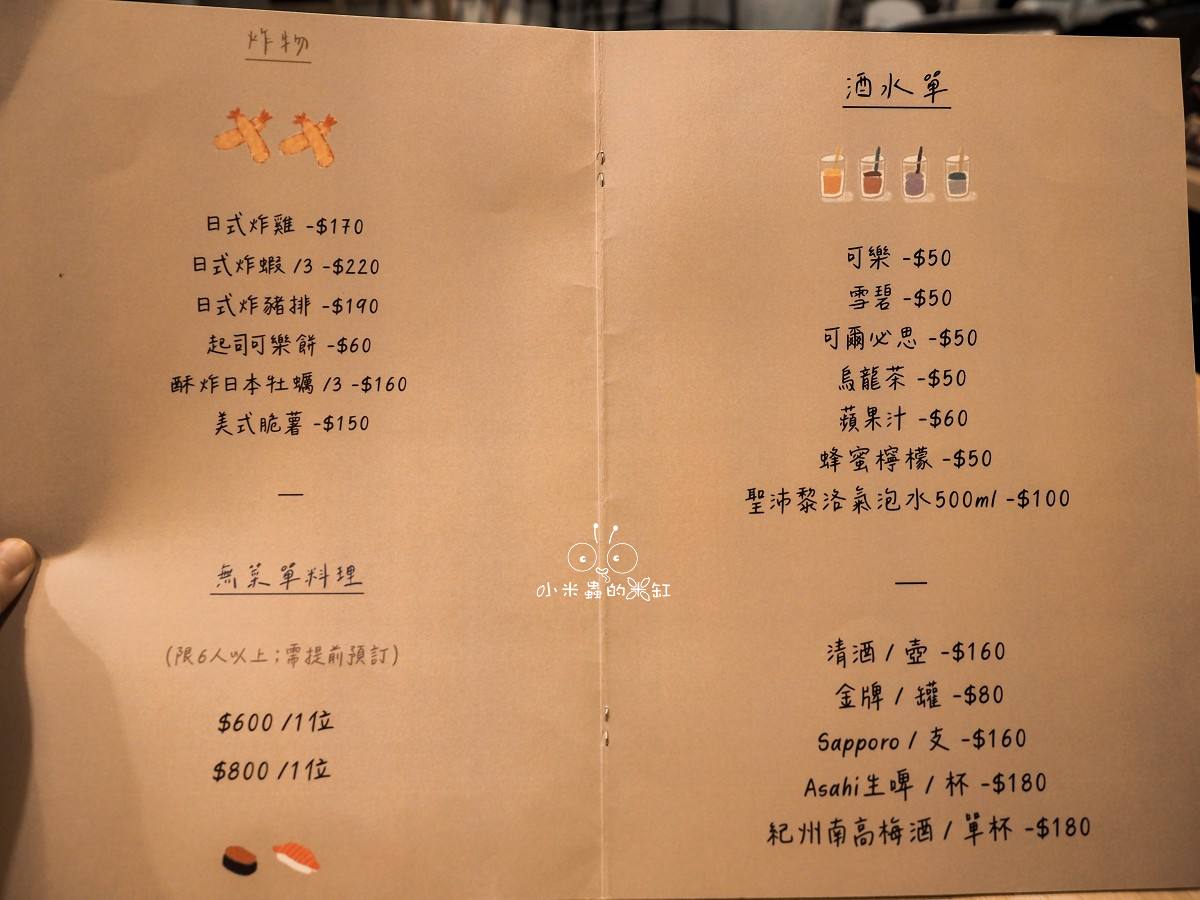 炸物
日式炸雞 -$170
日式炸蝦 /3 -$220
日式炸豬排 -$190
起司可樂餅 -$60
酥炸日本牡蠣 /3 -$160
美式脆薯 -$150
無菜單料理
(限6人以上；需提前預訂)
$600 /1位
$800 /1位
酒水單
可樂 -$50
雪碧 -$50
可爾必思 -$50
烏龍茶 -$50
蘋果汁 -$60
蜂蜜檸檬 -$50
聖沛黎洛氣泡水500ml -$100
清酒 / 壺 -$160
金牌 / 罐 -$80
Sapporo / 支 -$160
Asahi生啤 / 杯 -$180
紀州南高梅酒 / 單杯 -$180
小米蟲的米缸